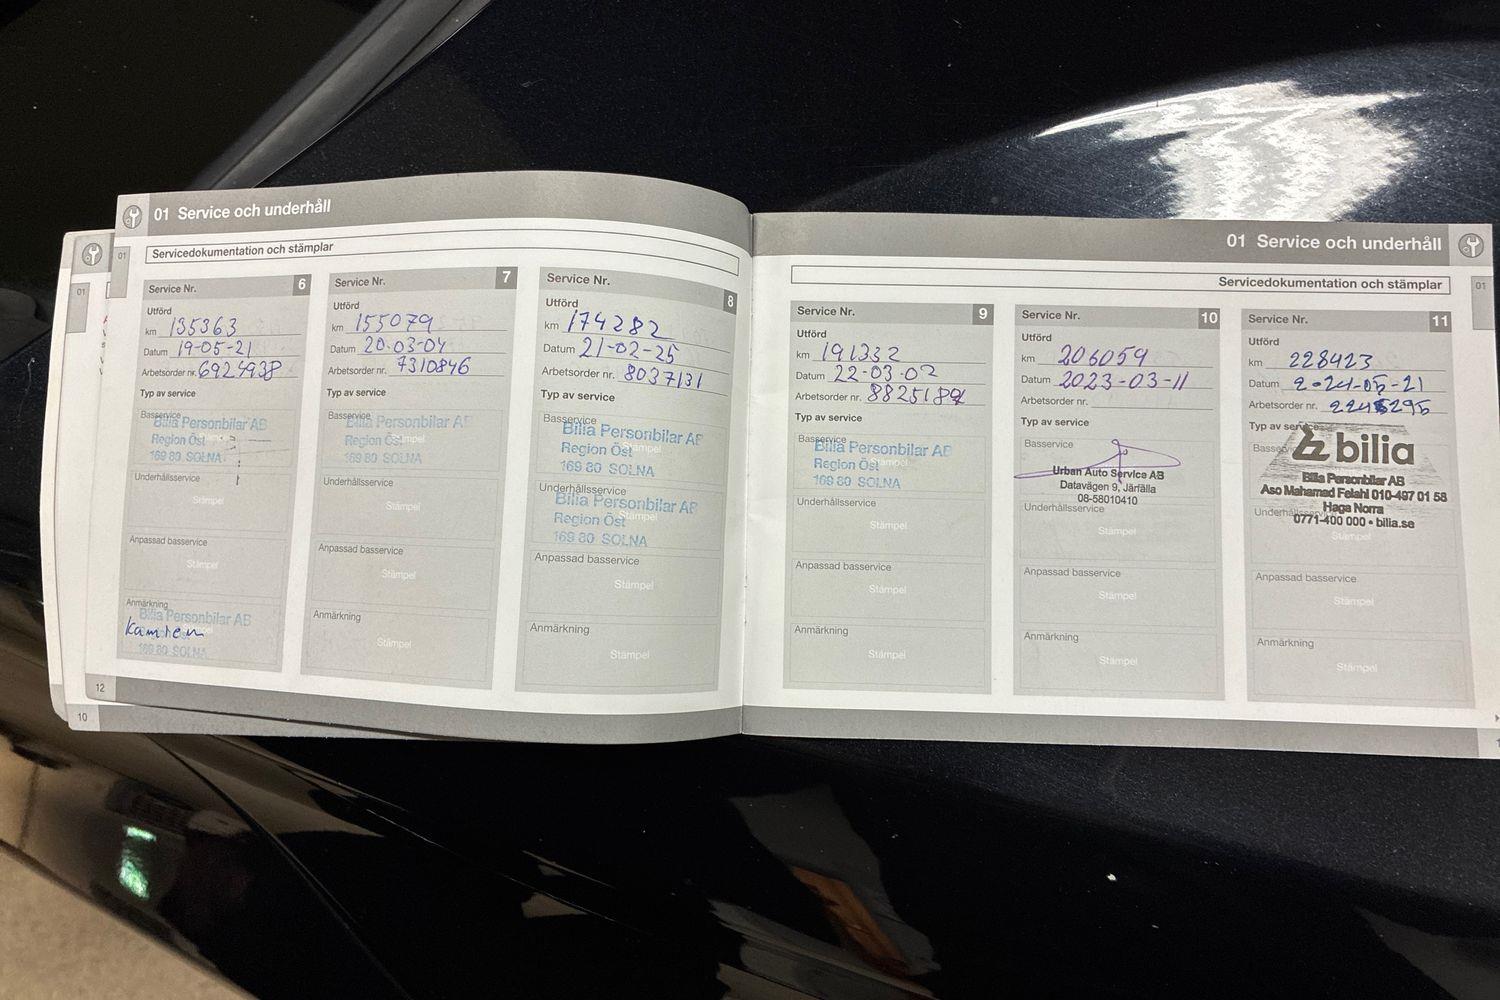 01 Service och underhåll
01
Servicedokumentation och stämplar
01
Service Nr. 6
Utförd
km 135363
Datum 19-05-21
Arbetsorder nr. 6924938
Typ av service
Basservice
Bilia Personbilar AB
Region Öst
169 80 SOLNA
Underhållsservice
Stämpel
Anpassad basservice
Stämpel
Anmärkning
Bilia Personbilar AB
Kamrem
169 80 SOLNA
12
10
Service Nr. 7
Utförd
km 155079
Datum 20-03-04
Arbetsorder nr. 7310846
Typ av service
Basservice
Stämpel
Bilia Personbilar AB
Region Öst
169 80 SOLNA
Underhållsservice
Stämpel
Anpassad basservice
Stämpel
Anmärkning
Stämpel
Service Nr. 8
Utförd
km 174282
Datum 21-02-25
Arbetsorder nr. 8037131
Typ av service
Basservice
Stämpel
Bilia Personbilar AB
Region Öst
169 80 SOLNA
Underhållsservice
Stämpel
Bilia Personbilar AB
Region Öst
169 80 SOLNA
Anpassad basservice
Stämpel
Anmärkning
Stämpel
01 Service och underhåll
Servicedokumentation och stämplar
01
Service Nr. 9
Utförd
km 191332
Datum 22-03-02
Arbetsorder nr.
Typ av service
Basservice
Stämpel
Bilia Personbilar AB
Region Öst
169 80 SOLNA
Underhållsservice
Stämpel
Anpassad basservice
Stämpel
Anmärkning
Stämpel
Service Nr. 10
Utförd
km 206059
Datum 2023-03-11
Arbetsorder nr.
Typ av service
Basservice
Urban Auto Service AB
Datavägen 9, Järfälla
08-58010410
Underhållsservice
Stämpel
Anpassad basservice
Stämpel
Anmärkning
Stämpel
Service Nr. 11
Utförd
km 228423
Datum 2024-05-21
Arbetsorder nr.
Typ av service
Basservice
bilia
Bilia Personbilar AB
Aso Mahamad Felahi 010-497 01 58
Haga Norra
0771-400 000 • bilia.se
Underhållsservice
Stämpel
Anpassad basservice
Stämpel
Anmärkning
Stämpel